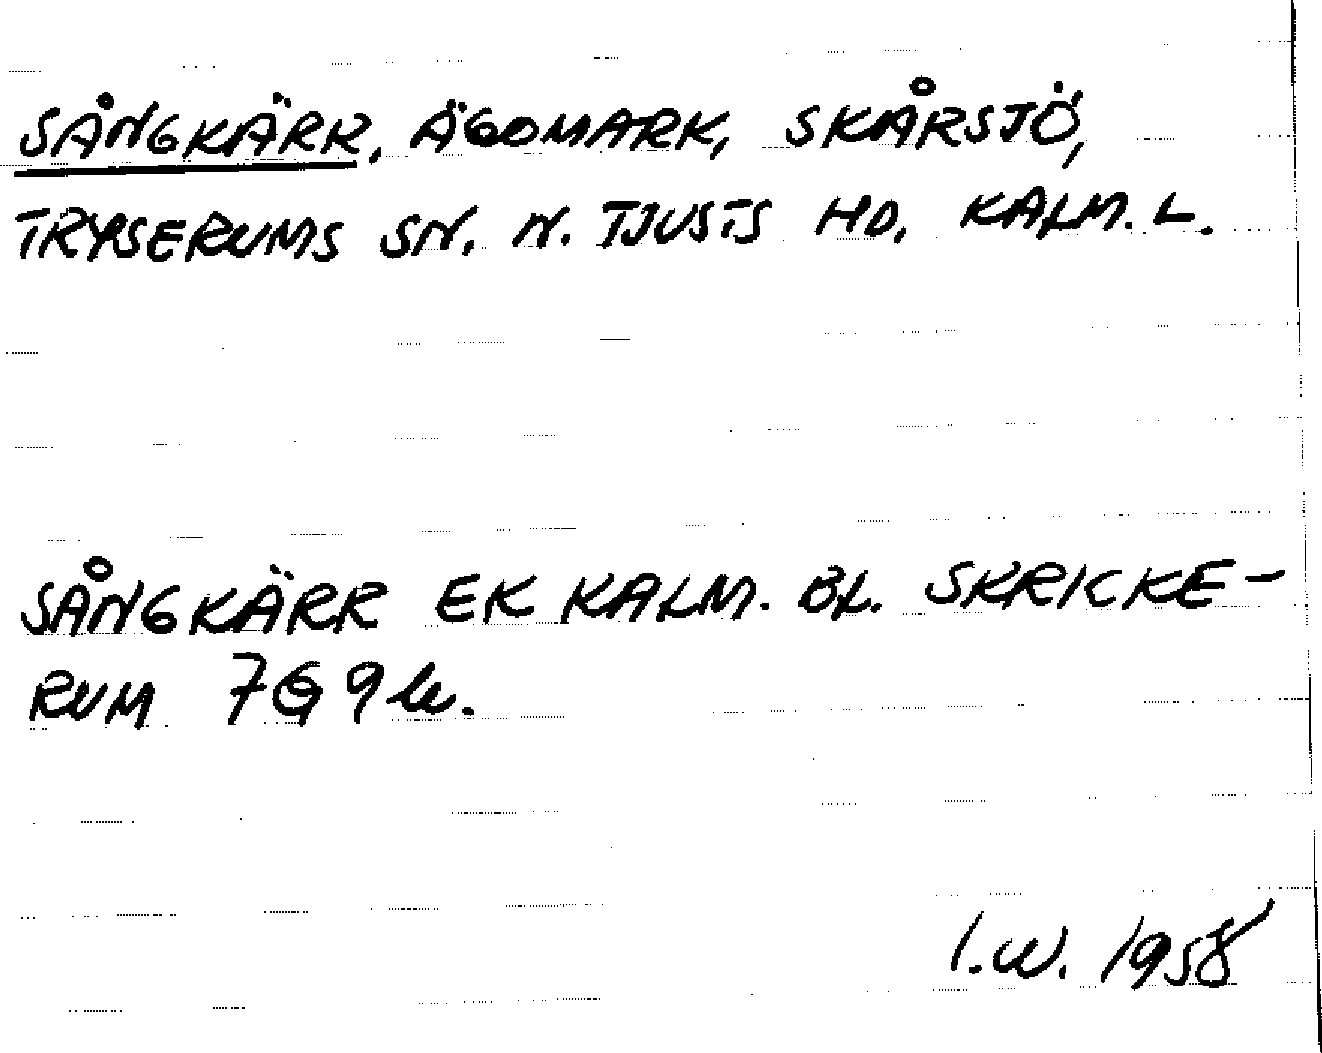 SÅNGKÄRR, ÄGOMARK, SKÅRSJÖ,
TRYSERUMS SN. N. TJUSTS HD, KALM. L.
SÅNGKÄRR EK KALM. BL. SKRICKE-
RUM 7G9h.
I.W. 1958